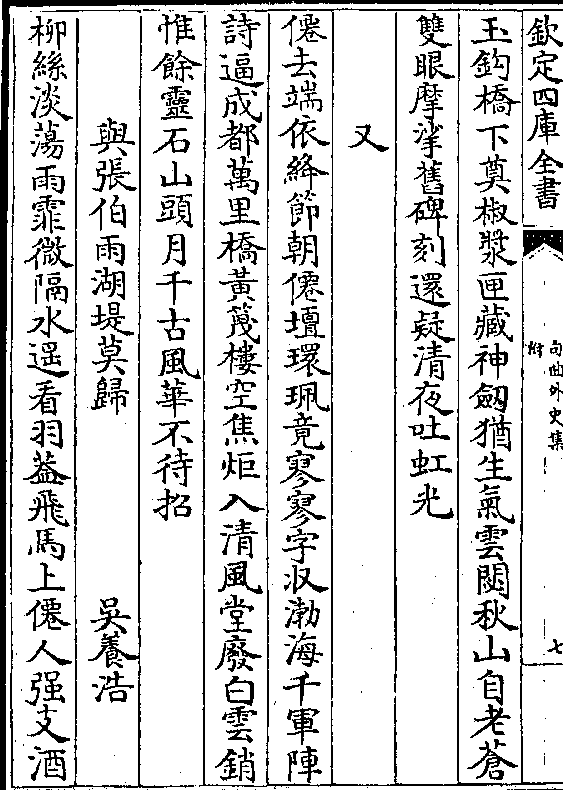 欽定四庫全書
句曲外史集
附
七
玉鈎橋下奠椒漿匣藏神劔猶生氣雲閟秋山自老蒼
雙眼摩挲舊碑刻還疑清夜吐虹光
又
僊去端依絳節朝僊壇環珮竟寥寥字収渤海千軍陣
詩逼成都萬里橋黃篾樓空焦炬入清風堂廢白雲銷
惟餘靈石山頭月千古風華不待招
與張伯雨湖堤莫歸
吳養浩
柳絲淡蕩雨霏微隔水遥看羽葢飛馬上僊人强支酒